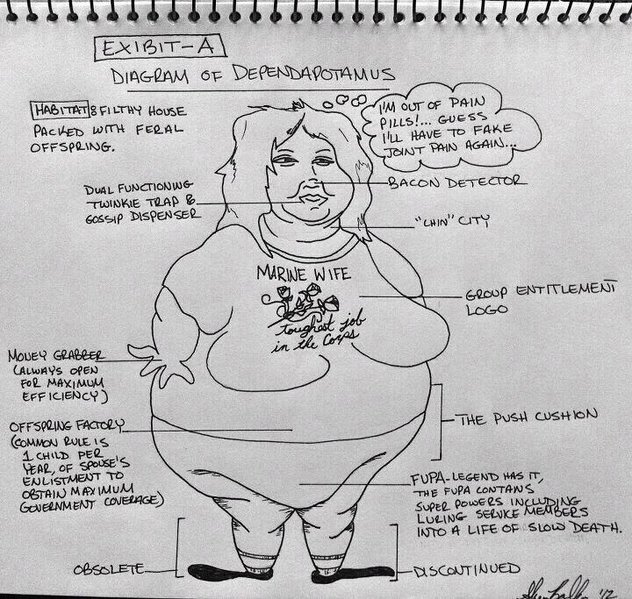 EXIBIT-A
DIAGRAM OF DEPENDAPOTAMUS
HABITAT: FILTHY HOUSE
PACKED WITH FERAL
OFFSPRING.
I'M OUT OF PAIN
PILLS!... GUESS
I'LL HAVE TO FAKE
JOINT PAIN AGAIN...
BACON DETECTOR
DUAL FUNCTIONING
TWINKIE TRAP &
GOSSIP DISPENSER
"CHIN" CITY
MARINE WIFE
toughest job
in the Corps
GROUP ENTITLEMENT
LOGO
MONEY GRABBER
(ALWAYS OPEN
FOR MAXIMUM
EFFICIENCY)
OFFSPRING FACTORY
(COMMON RULE IS
1 CHILD PER
YEAR, OF SPOUSE'S
ENLISTMENT TO
OBTAIN MAXIMUM
GOVERNMENT COVERAGE)
THE PUSH CUSHION
FUPA-LEGEND HAS IT,
THE FUPA CONTAINS
SUPER POWERS INCLUDING
LURING SERVICE MEMBERS
INTO A LIFE OF SLOW DEATH.
OBSOLETE
DISCONTINUED
'12